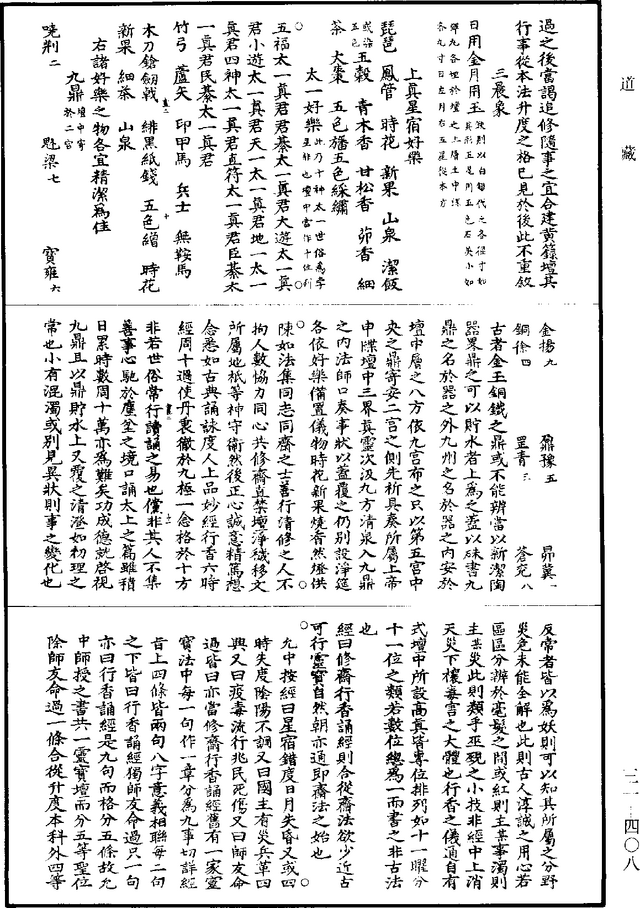 道藏
三一-四〇八
過之後當謁追修隨事之宜合建黃籙壇其
行事從本法升度之格已見於後此不重敘
三晨象
日用金月用玉
上真星宿好樂
琵琶 鳳管 時花 新果 山泉 潔飯
五穀 青木香 甘松香 茆香 細
茶 大棗 五色旛五色綵繡
太一好樂
五福太一真君君綦太一真君大遊太一真
君小遊太一真君天一太一真君地一太一
真君四神太一真君直符太一真君臣綦太
一真君民綦太一真君
竹弓 蘆矢 印甲馬 兵士 無鞍馬
木刀槍劒戟 緋黑紙錢 五色繒 時花
新果 細茶 山泉
右諸好樂之物各宜精潔為佳
九鼎
曉荆二 魁梁七 寶雍六
金揚九 鼏豫五 昴冀一
銅徐四 罡青三 蒼兗八
古者金玉銅鐵之鼎或不能辨當以新潔陶
器眾鼎之可以貯水者上為之蓋以硃書九
鼎之名於器之外九州之名於器之內安於
壇中層之八方依九宮布之只以第五宮中
央之鼎寄安二宮之側先祈具奏所屬上帝
申牒壇中三界真靈次汲九方清泉入九鼎
之內法師口奏事狀以蓋覆之仍別設淨筵
各依好樂備置儀物時花新果燒香然燈供
陳如法集同志同齋之士善行清修之人不
拘人數協力同心共修齋直禁壇淨穢移文
所屬地祇等神守衛然後正心誠意精篤想
念悉如古典誦詠度人上品妙經行香六時
經周十過使丹衷徹於九極一念格於十方
非若世俗常行讀誦之易也儻非其人不集
善事心馳於塵坌之境口誦太上之篇雖積
日累時數周十萬亦為難矣功成德就啓視
九鼎且以鼎貯水上又覆之清澄如初理之
常也小有混濁或別見異狀則事之變化也
反常者皆以為妖則可以知其所屬之分野
災危未能全解也此則古人淳誠之用心若
區區分辨於毫髮之間或紅則主某事濁則
主某災此則類乎巫覡之小技非經中上消
天災下禳毒害之大體也行香之儀適自有
式壇中所設高真皆專位排列如十一曜分
十一位之類若數位總為一而書之非古法
也
經曰修齋行香誦經則合從齋法欲少近古
可行靈寶自然朝亦適即齋法之始也
允中按經曰星宿錯度日月失昏又或四
時失度陰陽不調又曰國主有災兵革四
興又曰疫毒流行兆民死傷又曰師友命
過皆曰亦當修齋行香誦經舊有一家靈
寶法中每一句作一章分為九事切詳經
旨上四條皆兩句八字意義相聯每二句
之下皆曰行香誦經獨師友命過只一句
亦曰行香誦經是九句而格分五條故允
中師授之書共一靈寶壇而分五等聖位
除師友命過一條合從升度本科外四等